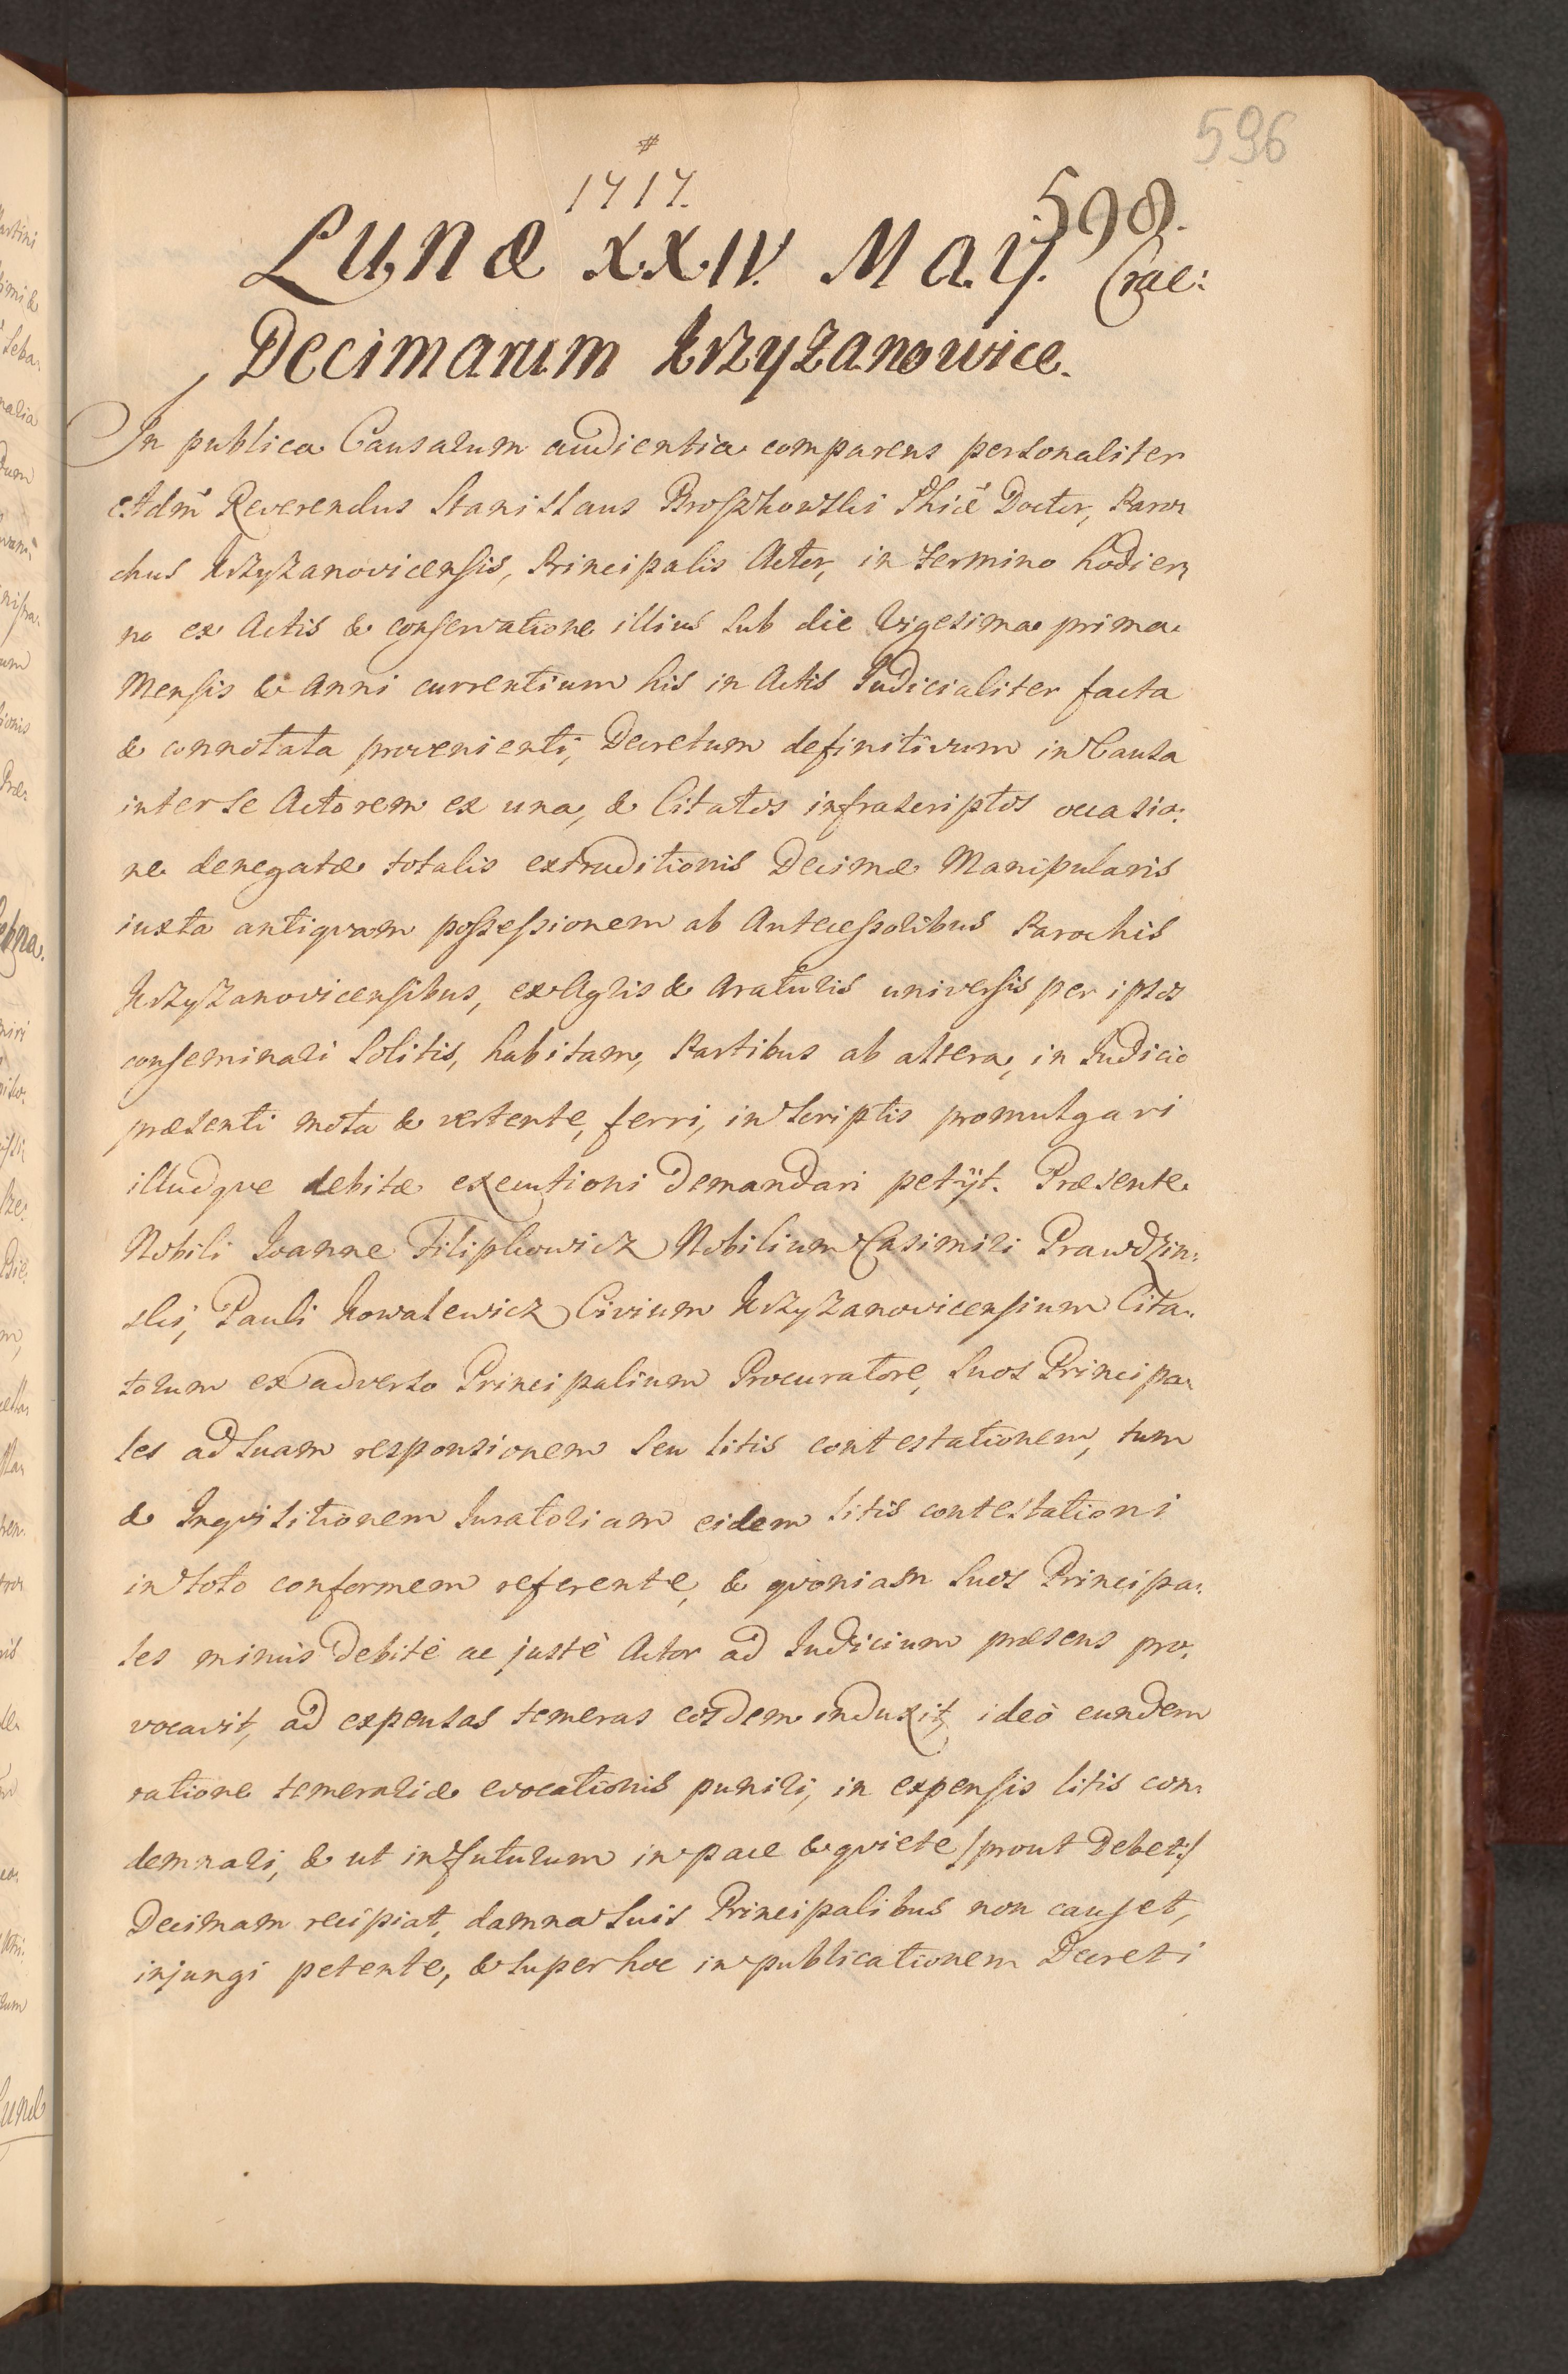 596
#
1717.
598.
Lunæ XXIV. Maÿ. Crac:
Decimarum Krzyzanowice.
In publica Causarum audientia comparens personaliter
Adm̃ Reverendus Stanislaus Proszkowski Phiæ Doctor, Paro-
chus Krzyzanovicensis, Principalis Actor, in termino hodier-
no ex Actis & conservatione illius sub die Vigesima prima
Mensis & Anni currentium his in Actis Judicialiter facta
& connotata provenienti, Decretum definitivum in Causa
inter se Actorem ex una, & Citatos infrascriptos occasio-
ne denegatæ totalis extraditionis Decimæ Manipularis
iuxta antiqvam possessionem ab Antecessoribus Parochis
Krzyzanovicensibus, ex Agris & Araturis universis per ipsos
conseminari solitis, habitam, Partibus ab altera, in Judicio
præsenti mota & vertente, ferri, in scriptis promulgari
illudqve debitæ executioni demandari petÿt. Præsente
Nobili Joanne Filipkowicz Nobilium Casimiri Prawdzin-
ski, Pauli Kowalewicz Civium Krzyzanovicensium Cita-
torum ex adverso Principalium Procuratore, suos Principa-
les ad suam responsionem seu litis contestationem, tum
& Inqvisitionem Juratoriam eidem litis contestationi
in toto conformem referente, & qvoniam suos Principa-
les minùs debitè ac justè Actor ad Judicium præsens pro-
vocavit, ad expensas temeras eosdem induxit, ideò eundem
ratione temerariæ evocationis puniri, in expensis litis con-
demnari, & ut in futurum in pace & qviete /:prout debet:/
Decimam recipiat, damna suis Principalibus non causet,
injungi petente, & super hoc in publicationem Decreti